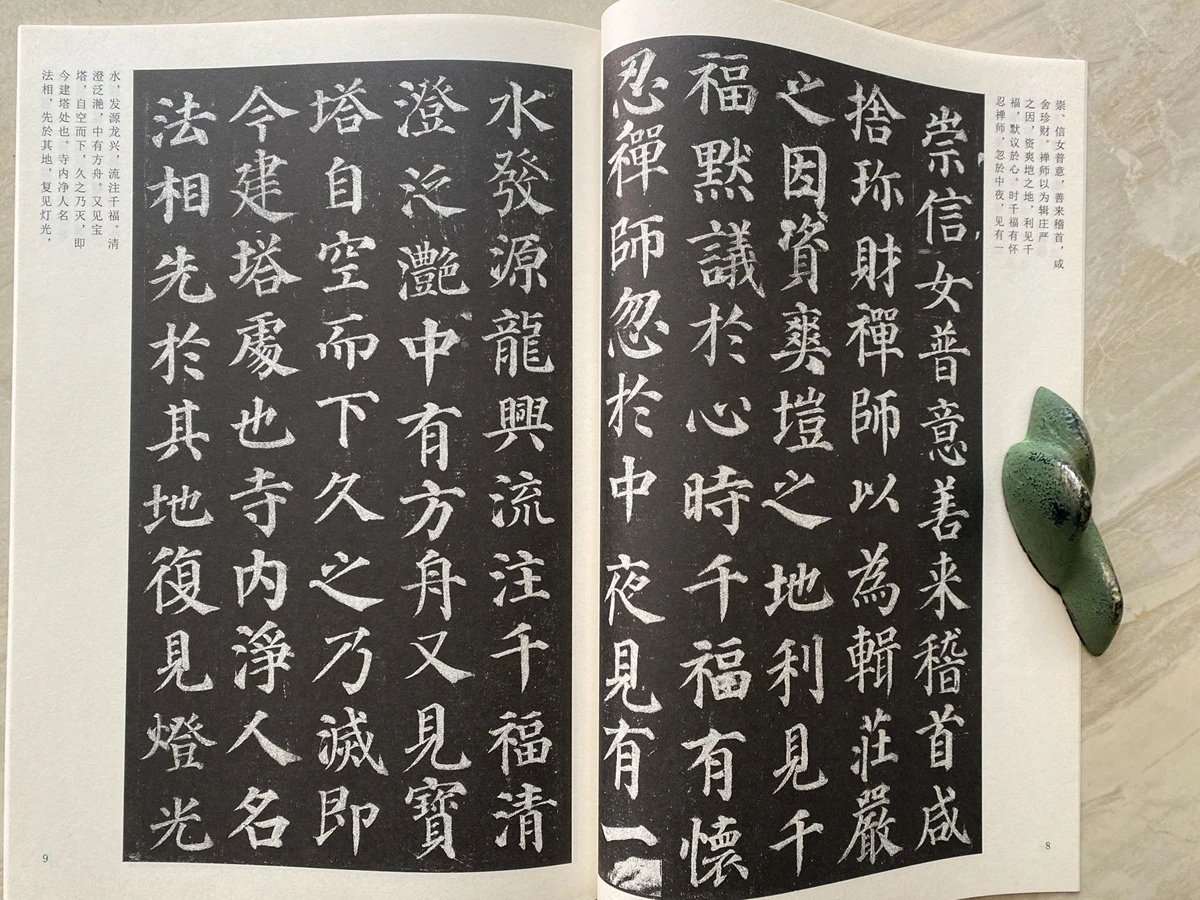 崇、信女普意，善来稽首，咸
舍珍财。禅师以为辑庄严
之因，资爽垲之地，利见千
福，默议於心。时千福有怀
忍禅师，忽於中夜，见有一
8
崇信女普意善来稽首咸
捨珎財禪師以為輯莊嚴
之因資爽塏之地利見千
福默議於心時千福有懷
忍禪師忽於中夜見有一
水發源龍興流注千福清
澄泛灩中有方舟又見寶
塔自空而下久之乃滅即
今建塔處也寺内淨人名
法相先於其地復見燈光
水，发源龙兴，流注千福。清
澄泛滟，中有方舟。又见宝
塔，自空而下，久之乃灭，即
今建塔处也。寺内净人名
法相，先於其地，复见灯光，
9